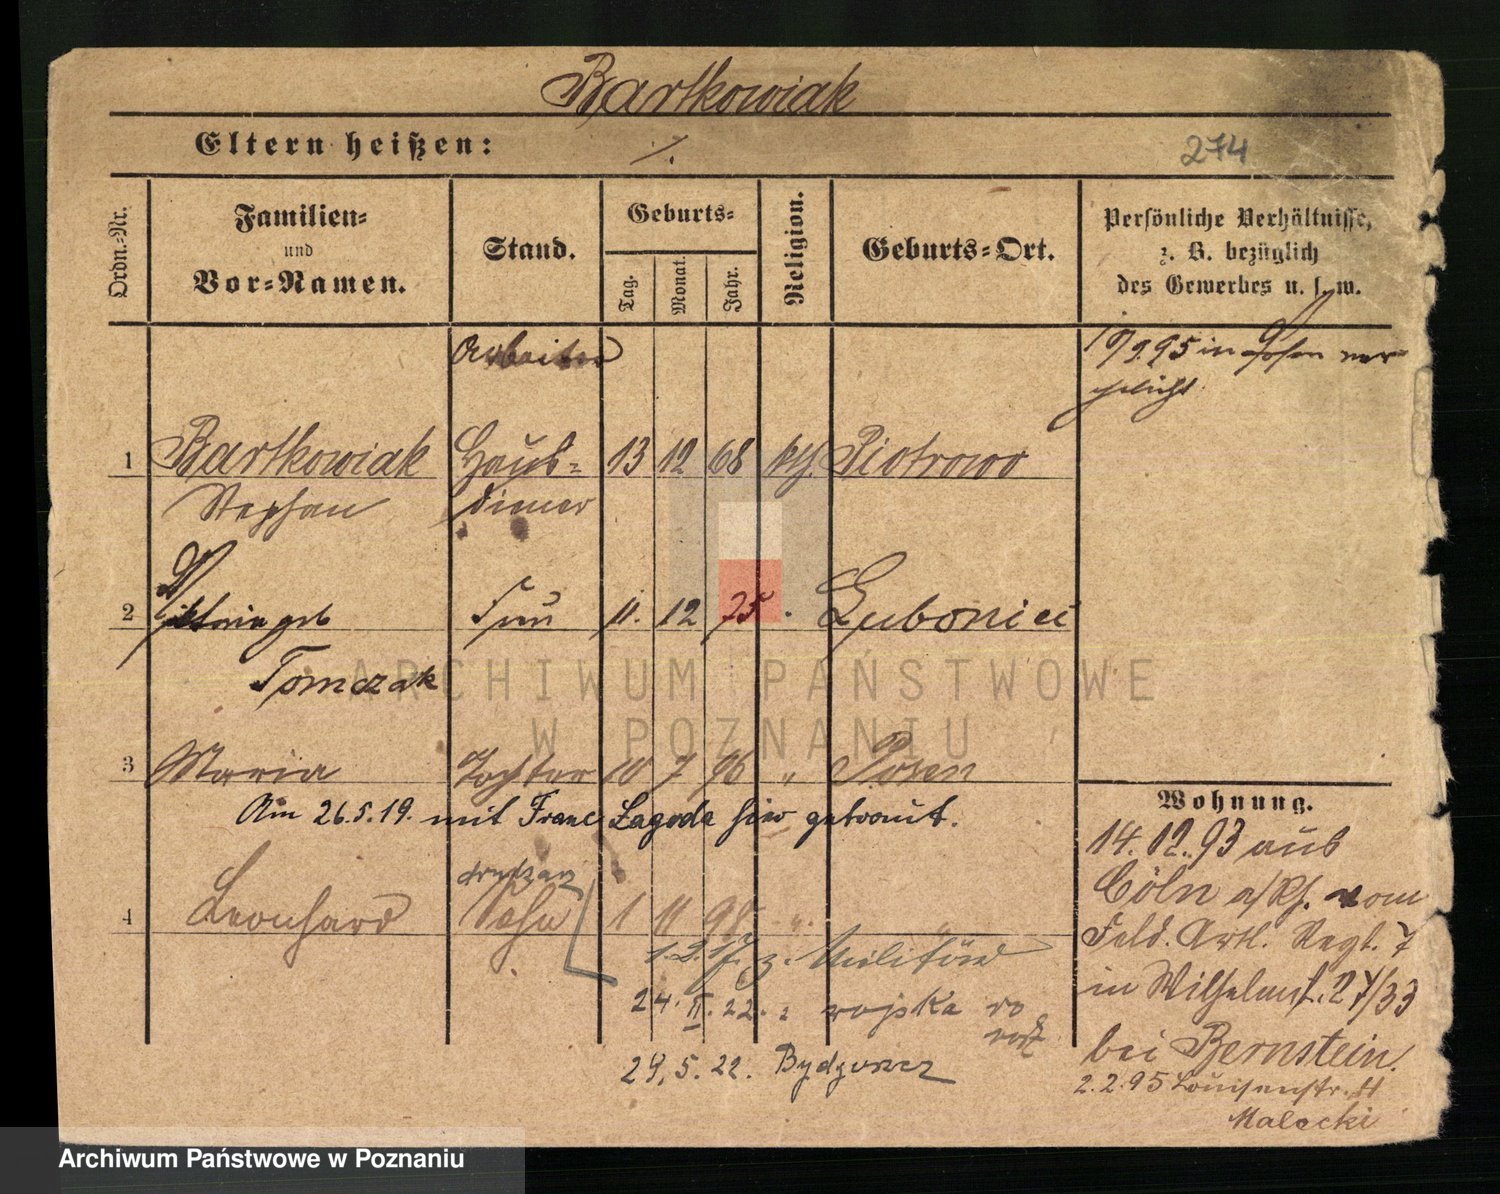 Bartkowiak
Eltern heißen: ⁒
274
Ordn.-Nr.
Familien-
und
Vor-Namen.
Stand.
Geburts-
Tag.
Monat.
Jahr.
Religion.
Geburts-Ort.
Persönliche Verhältnisse,
z. B. bezüglich
des Gewerbes u. s. w.
Arbeiter
1 Bartkowiak Haus- 13 12 68 kth. Piotrowo
Stephan diener
9.95 in Posen ver-
2 geb Frau 11. 12 75 .
Tomczak
3 Maria Tochter 10 7 96 " Posen
Am 26.5.19. mit Franc Lagoda hier getraut.
drukarz
4 Leonhard Sohn 1 11 98 "
z. Militär
24. II. 22. z wojska
29.5.22. Bydgoszcz
Wohnung.
14.12.93 aus
Cöln a/Rh. vom
Feld. Artl. Regt. 7
in Wilhelmst. 27/33
bei Bernstein.
2.2.95 Louisenstr. 11
Malecki
ARCHIWUM PAŃSTWOWE
W POZNANIU
Archiwum Państwowe w Poznaniu